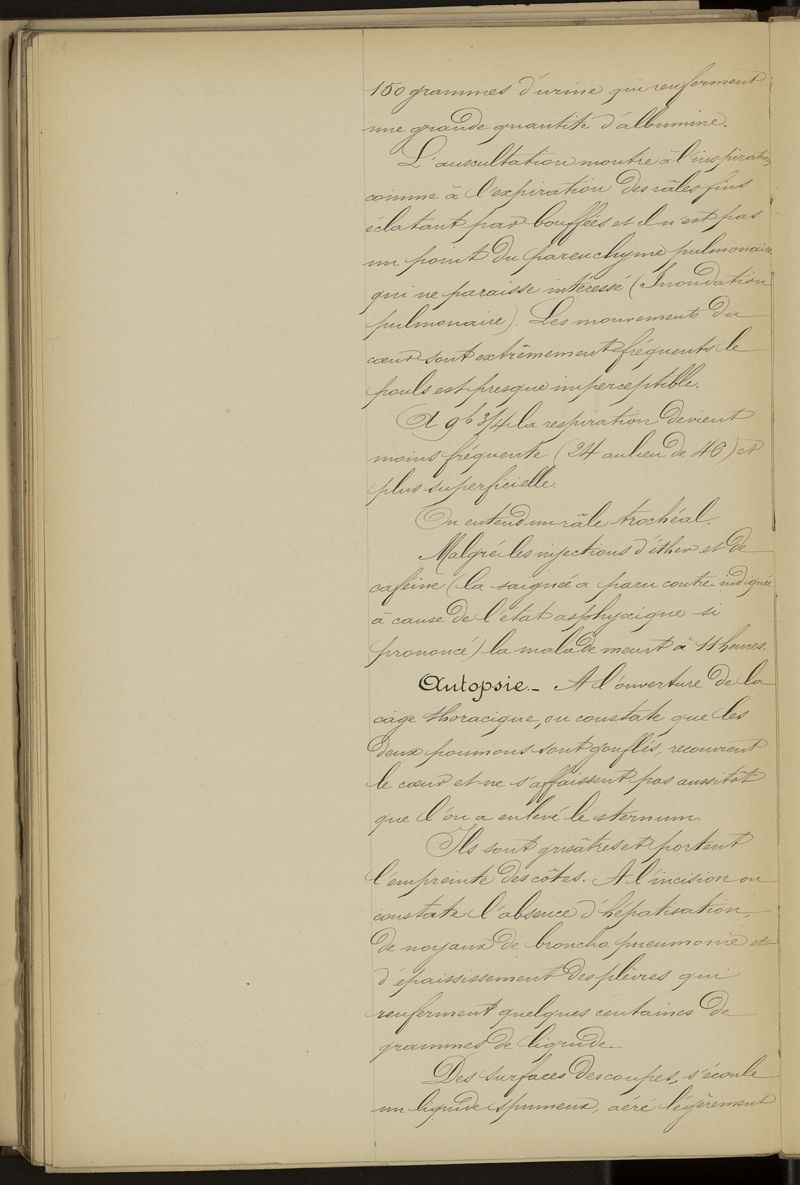 150 grammes d'urine qui renferment
une grande quantité d'albumine.
L'auscultation montre à l'inspiration
comme à l'expiration des râles fins
éclatant par bouffées et il n'est pas
un point du parenchyme pulmonaire
qui ne paraisse intéressé (Inondation
pulmonaire). Les mouvements du
cœur sont extrêmement fréquents le
pouls est presque imperceptible.
A 9h 3/4 la respiration devient
moins fréquente (24 au lieu de 46) et
plus superficielle.
On entend un râle trachéal.
Malgré les injections d'éther et de
caféine (la saignée a paru contre-indiquée
à cause de l'état asphyxique si
prononcé) la malade meurt à 11 heures.
Autopsie. - A l'ouverture de la
cage thoracique, on constate que les
deux poumons sont gonflés, recouvrent
le cœur et ne s'affaissent pas aussitôt
que l'on a enlevé le sternum.
Ils sont grisâtres et portent
l'empreinte des côtes. A l'incision on
constate l'absence d'hépatisation,
de noyaux de broncho pneumonie et
d'épaississement des plèvres qui
renferment quelques centaines de
grammes de liquide.
Des surfaces des coupes, s'écoule
un liquide spumeux, aéré légèrement